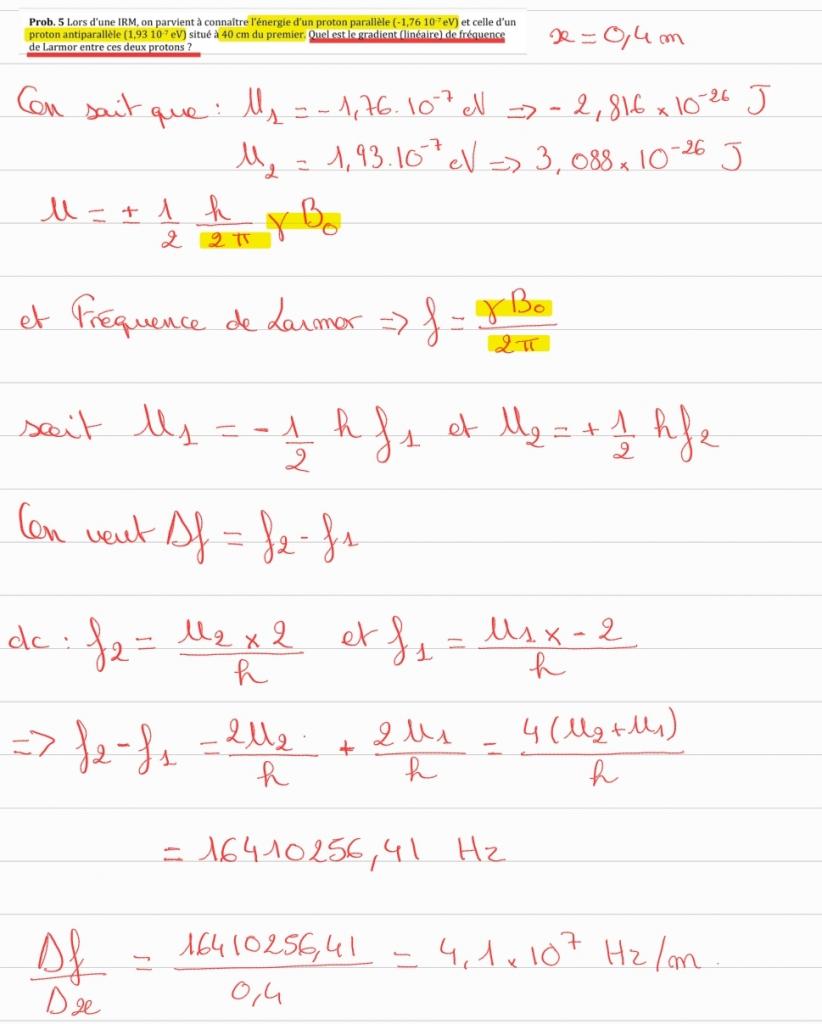 Prob. 5 Lors d'une IRM, on parvient à connaître l'énergie d'un proton parallèle (-1,76 10⁻⁷ eV) et celle d'un
proton antiparallèle (1,93 10⁻⁷ eV) situé à 40 cm du premier. Quel est le gradient (linéaire) de fréquence
de Larmor entre ces deux protons ?
x = 0,4 m
On sait que : U₁ = - 1,76.10⁻⁷ eV => - 2,816 x 10⁻²⁶ J
U₂ = 1,93.10⁻⁷ eV => 3,088 x 10⁻²⁶ J
U = ± 1/2 h/2π γ B₀
et Fréquence de Larmor => f = γ B₀/2π
soit U₁ = - 1/2 h f₁ et U₂ = + 1/2 h f₂
On veut Δf = f₂ - f₁
dc : f₂ = U₂ x 2/h et f₁ = U₁ x - 2/h
=> f₂ - f₁ = 2U₂/h + 2U₁/h = 4(U₂ + U₁)/h
= 16410256,41 Hz
Δf/Dx = 16410256,41/0,4 = 4,1 x 10⁷ Hz/m.